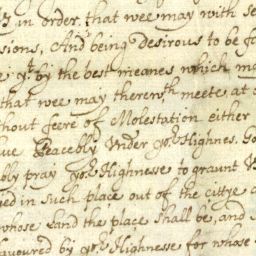 in order, that wee may with se
sions, And being desirous to be fa
yt by the best meanes which ma
that wee may therewth meete at o
hout feere of Molestation either
ue Peacebly Vnder yor Highnes. Go
bly pray yor Highnesse to graunt
ed in such place out of the cittye
whose Land the place shall be, and
avoured by yor Highnesse for whose